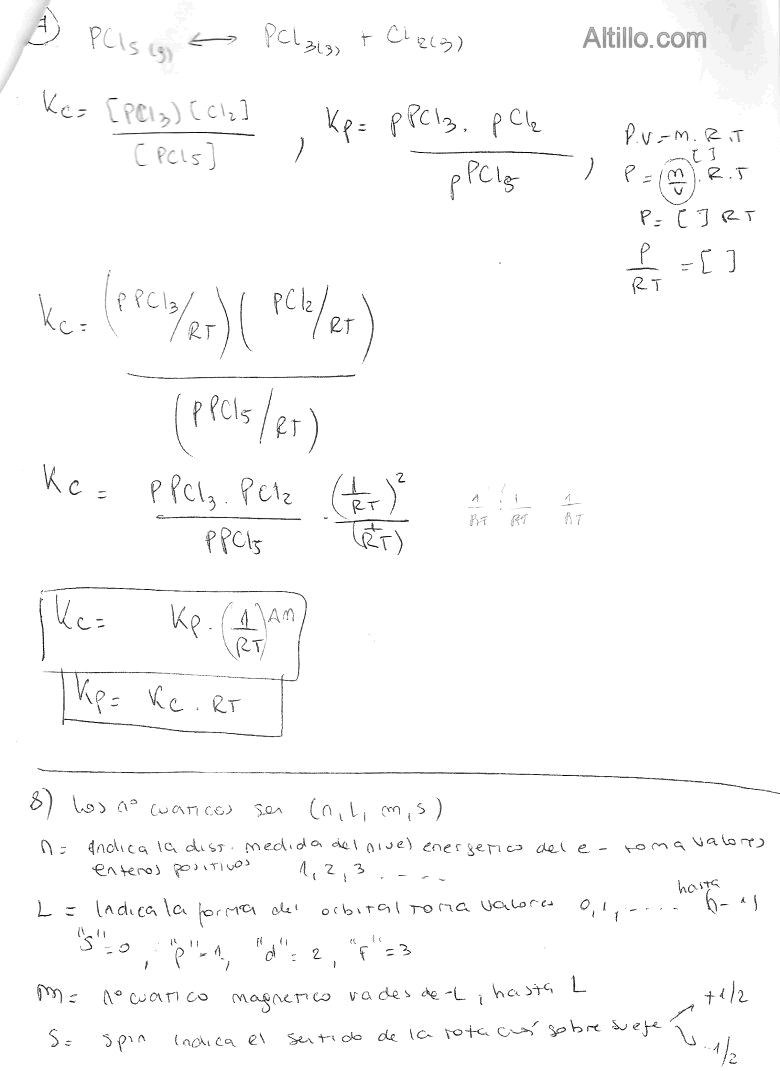 7) PCl5(g) ⟷ PCl3(g) + Cl2(g)
Altillo.com
Kc = [PCl3)[Cl2] / [PCl5] , Kp = pPCl3 . pCl2 / pPCl5 ,
P.V = n.R.T
[ ]
P = (n/V) . R.T
P = [ ] RT
P/RT = [ ]
Kc = (PPCl3/RT)(PCl2/RT) / (PPCl5/RT)
Kc = PPCl3 . PCl2 / PPCl5 . (1/RT)^2 / (1/RT)
1/RT : 1/RT 1/RT
Kc = Kp . (1/RT)^Δn
Kp = Kc . RT
8) Los nº cuanticos son (n, L, m, s)
n = Indica la dist. medida del nivel energetico del e- toma valores
enteros positivos 1, 2, 3 . . . .
L = Indica la forma del orbital toma valores 0, 1, ..... hasta n-1
"S"=0, "p"=1, "d"=2, "f"=3
m = nº cuantico magnetico va desde -L, hasta L
S = spin indica el sentido de la rotacion sobre su eje +1/2
-1/2